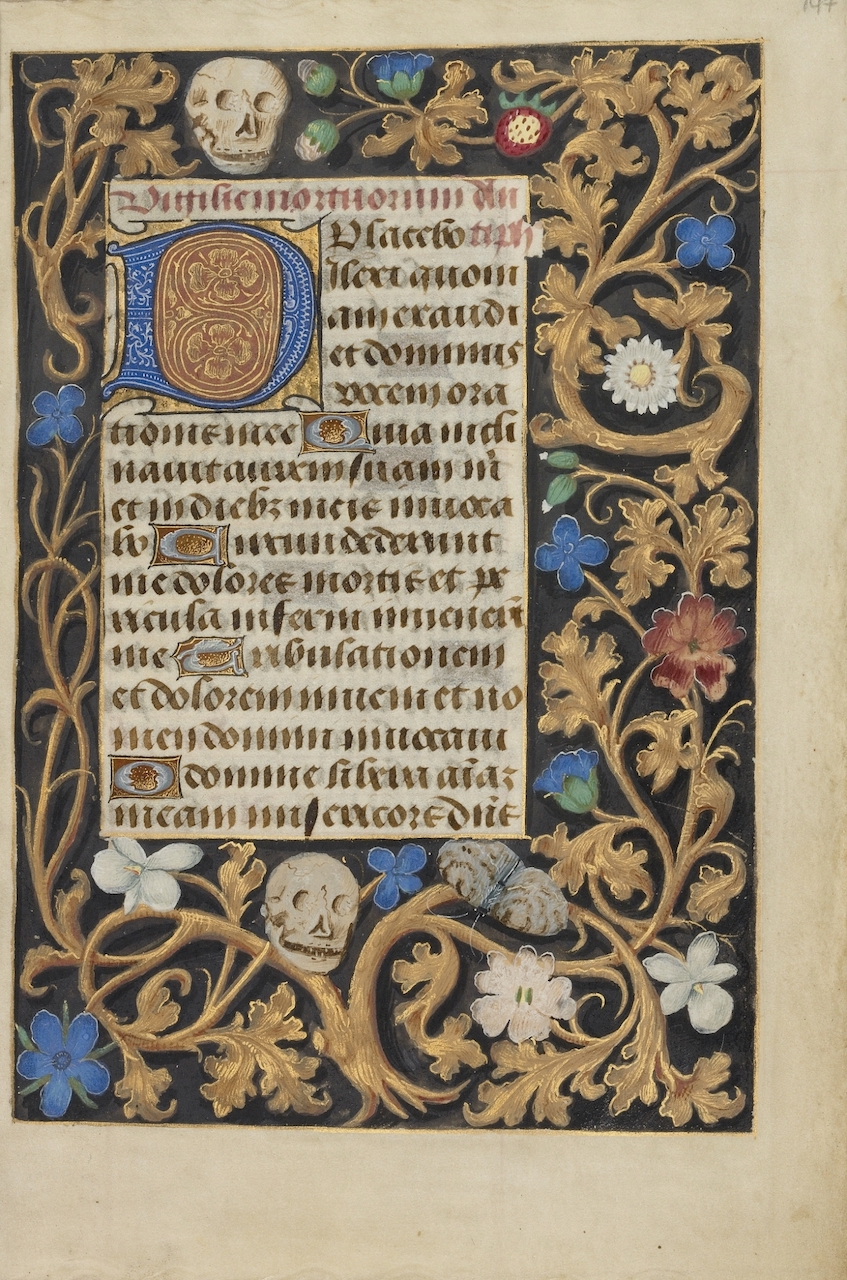 147
Vigilie mortuorum An
Placebo tiph
Dilexi quoni
am exaudi
et dominus
vocem ora
tionis mee Quia incli
nauit aurem suam m̄
et in diebȝ meis inuoca
bo Circumdederunt
me dolores mortis et pe
ricula inferni inuenerūt
me Tribulationem
et dolorem inueni et no
men domini inuocaui
O domine libera aīaȝ
meam misericors dn̄s